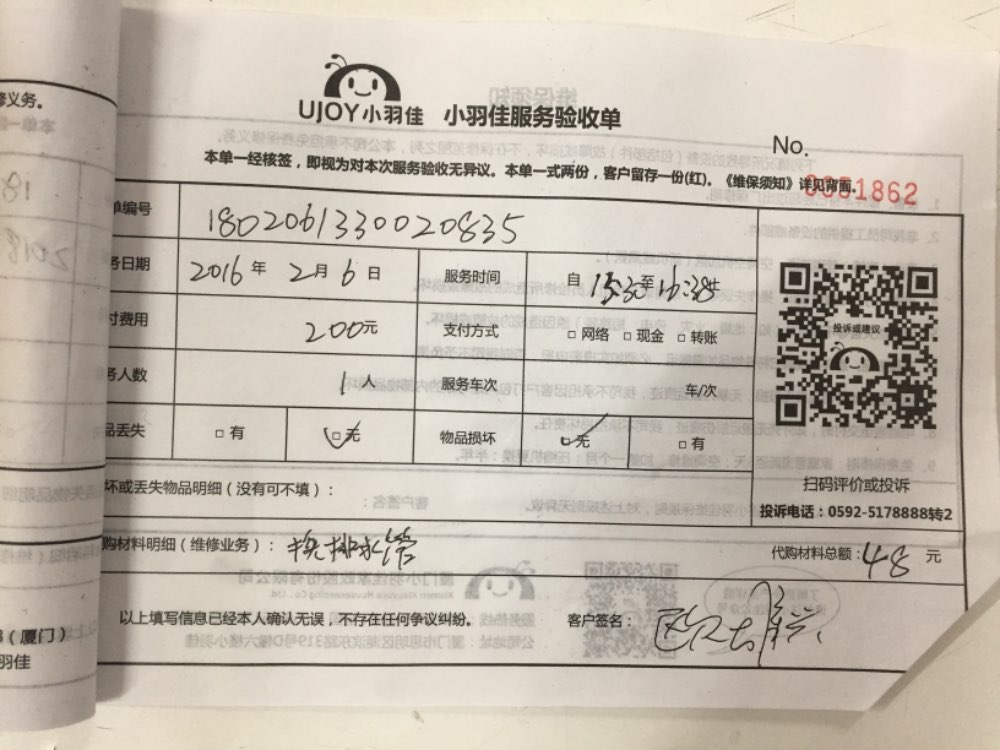 UJOY小羽佳 小羽佳服务验收单
No. 0051862
本单一经核签，即视为对本次服务验收无异议。本单一式两份，客户留存一份(红)。《维保须知》详见背面。
单编号 1802061330020835
务日期 2016年 2月6日 服务时间 自 13:30至16:38止
付费用 200元 支付方式 □网络 □现金 □转账
务人数 1人 服务车次 车/次
品丢失 □有 □无 物品损坏 □无 □有
投诉或建议
扫码评价或投诉
投诉电话：0592-5178888转2
坏或丢失物品明细（没有可不填）：
购材料明细（维修业务）：换排水管 代购材料总额：48元
以上填写信息已经本人确认无误，不存在任何争议纠纷。 客户签名：
修义务。
（厦门）
羽佳